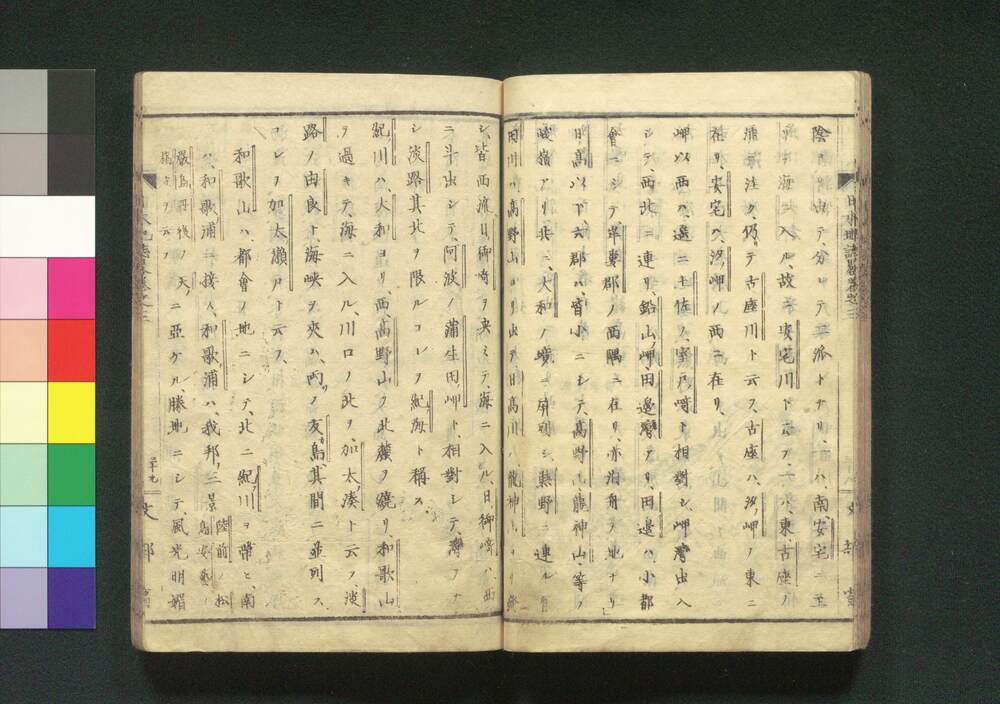 陰ヨリ由テ、分レテ二派トナリ、一ハ南安宅ニ至
リ、海ニ入ル、故ニ安宅川ト云フ、一ハ東、古座ノ
浦ニ注ク、仍テ古座川ト云フ、古座ハ、汐ノ岬ノ東ニ
在リ、安宅ハ、汐ノ岬ノ西ニ在リ、
岬以西ハ、遥ニ土佐ノ室乃崎ト相對シ、岬灣出入
シテ、西北ニ連リ、鉛山ノ岬田邊灣アリ、田邊ハ、小都
會ニシテ、牟婁郡ノ西隅ニ在リ、亦泊舟ノ地ナリ
日高以下六郡ハ、皆小ニシテ、高野山龍神山等ノ
峻嶺アリ、共ニ大和ノ境ニ羅列シ、熊野ニ連ル、有
田川ハ、高野山ヨリ出テ、日高川ハ、龍神山ヨリ發
シ、皆西流、日ノ御崎ヲ夾ミテ、海ニ入ル、日ノ御崎ハ、西
ニ斗出シテ、阿波ノ蒲生田ノ岬ト、相對シテ、灣ヲナ
シ、淡路其北ヲ限ル、コレヲ紀海ト稱ス、
紀ノ川ハ、大和ヨリ、西、高野山ノ北麓ヲ繞リ、和歌山
ヲ過キテ、海ニ入ル、川口ノ北ヲ、加太ノ湊ト云フ、淡
路ノ由良ト海峡ヲ夾ハ、兩ノ友島、其間ニ並列ス、
コレヲ加太ノ瀬戸ト云フ、
和歌山ハ、都會ノ地ニシテ、北ニ紀ノ川ヲ帶ヒ、南
ハ、和歌浦ニ接ス、和歌浦ハ、我邦ノ三景 陸前ノ松島安藝ノ
嚴島丹後ノ天橋立ヲ云フ ニ亞ケル勝地ニシテ、風光明媚
日本地誌略 巻之三
二十九
文部省